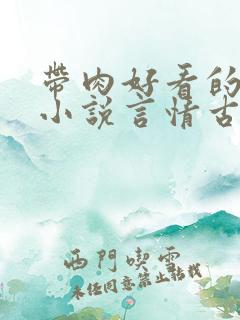 帶肉好看的
小說言情古
西門喫雪
未经同意禁止转载